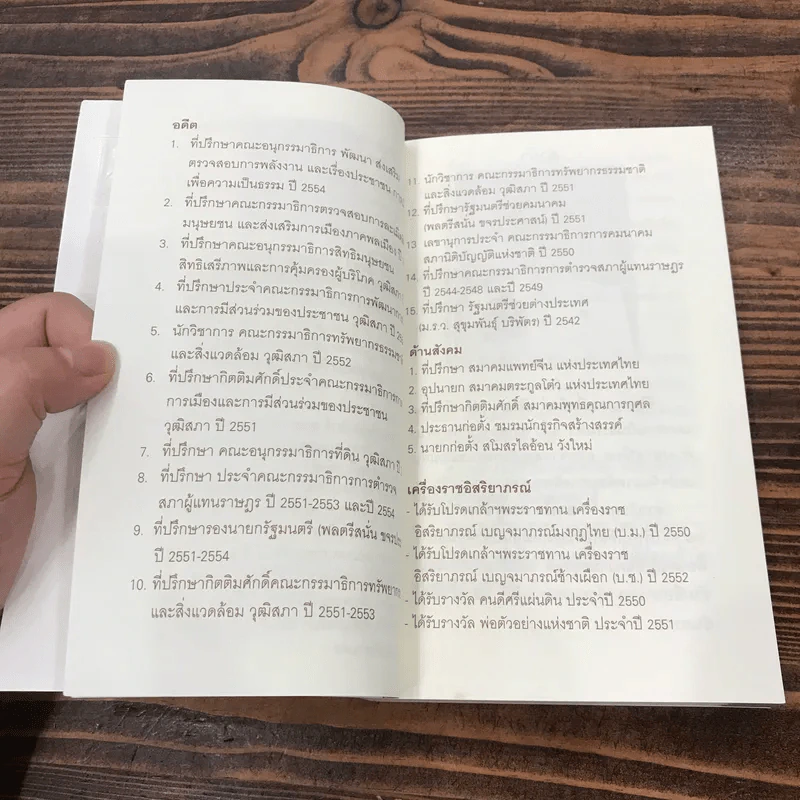 อดีต
1. ที่ปรึกษาคณะอนุกรรมาธิการ พัฒนา ส่งเสริม
ตรวจสอบการพลังงาน และเรื่องประชาชน
เพื่อความเป็นธรรม ปี 2554
2. ที่ปรึกษาคณะกรรมาธิการตรวจสอบการละเมิด
มนุษยชน และส่งเสริมการเมืองภาคพลเมือง
3. ที่ปรึกษาคณะอนุกรรมาธิการสิทธิมนุษยชน
สิทธิเสรีภาพและการคุ้มครองผู้บริโภค วุฒิสภา
4. ที่ปรึกษาประจำคณะกรรมาธิการการพัฒนาการ
และการมีส่วนร่วมของประชาชน วุฒิสภา ปี
5. นักวิชาการ คณะกรรมาธิการทรัพยากรธรรมชาติ
และสิ่งแวดล้อม วุฒิสภา ปี 2552
6. ที่ปรึกษากิตติมศักดิ์ประจำคณะกรรมาธิการการ
การเมืองและการมีส่วนร่วมของประชาชน
วุฒิสภา ปี 2551
7. ที่ปรึกษา คณะอนุกรรมาธิการที่ดิน วุฒิสภา ปี
8. ที่ปรึกษา ประจำคณะกรรมาธิการการตำรวจ
สภาผู้แทนราษฎร ปี 2551-2553 และปี 2554
9. ที่ปรึกษารองนายกรัฐมนตรี (พลตรีสนั่น
ปี 2551-2554
10. ที่ปรึกษากิตติมศักดิ์คณะกรรมาธิการทรัพยากร
และสิ่งแวดล้อม วุฒิสภา ปี 2551-2553
11. นักวิชาการ คณะกรรมาธิการทรัพยากรธรรมชาติ
และสิ่งแวดล้อม วุฒิสภา ปี 2551
12. ที่ปรึกษารัฐมนตรีช่วยคมนาคม
(พลตรีสนั่น ขจรประศาสน์) ปี 2551
13 เลขานุการประจำ คณะกรรมาธิการการคมนาคม
สภานิติบัญญัติแห่งชาติ ปี 2550
14. ที่ปรึกษาคณะกรรมาธิการการตำรวจสภาผู้แทนราษฎร
ปี 2544-2548 และปี 2549
15. ที่ปรึกษา รัฐมนตรีช่วยต่างประเทศ
(ม.ร.ว. สุขุมพันธุ์ บริพัตร) ปี 2542
ด้านสังคม
1. ที่ปรึกษา สมาคมแพทย์จีน แห่งประเทศไทย
2. อุปนายก สมาคมตระกูลโต๋ว แห่งประเทศไทย
3. ที่ปรึกษากิตติมศักดิ์ สมาคมพุทธคุณการกุศล
4. ประธานก่อตั้ง ชมรมนักธุรกิจสร้างสรรค์
5. นายกก่อตั้ง สโมสรไลอ้อน วังใหม่
เครื่องราชอิสริยาภรณ์
- ได้รับโปรดเกล้าฯพระราชทาน เครื่องราช
อิสริยาภรณ์ เบญจมาภรณ์มงกุฎไทย (บ.ม.) ปี 2550
- ได้รับโปรดเกล้าฯพระราชทาน เครื่องราช
อิสริยาภรณ์ เบญจมาภรณ์ช้างเผือก (บ.ช.) ปี 2552
- ได้รับรางวัล คนดีศรีแผ่นดิน ประจำปี 2550
- ได้รับรางวัล พ่อตัวอย่างแห่งชาติ ประจำปี 2551